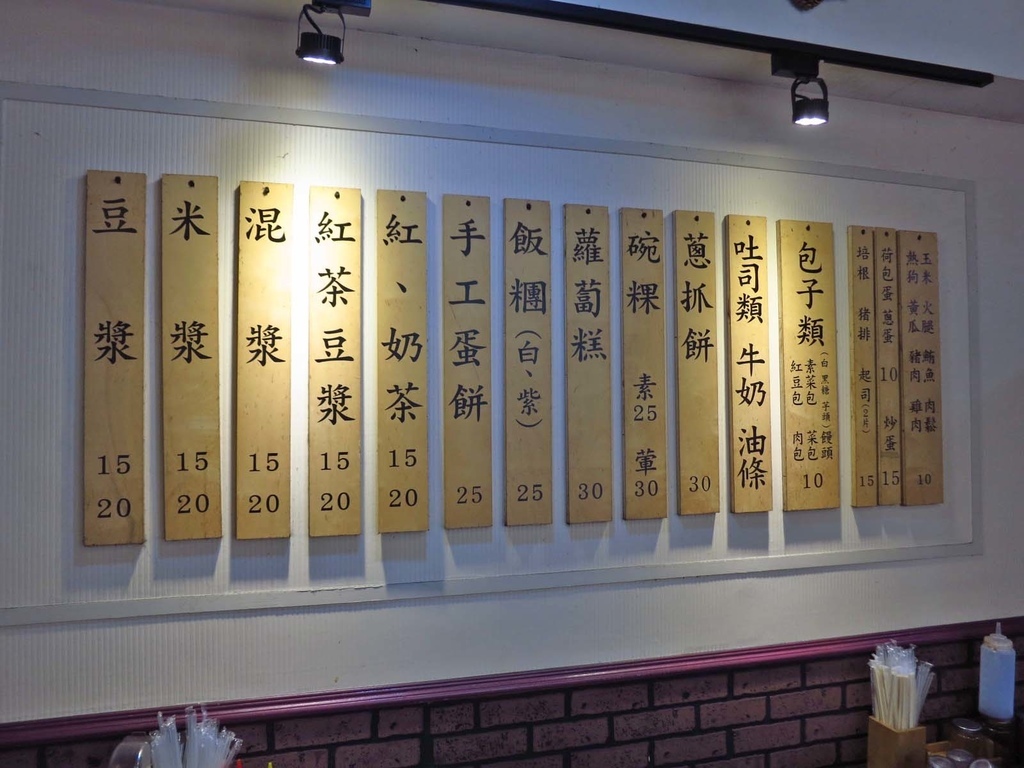 豆漿 15 20
米漿 15 20
混漿 15 20
紅茶豆漿 15 20
紅、奶茶 15 20
手工蛋餅 25
飯糰(白、紫) 25
蘿蔔糕 30
碗粿 素25 葷30
蔥抓餅 30
吐司類 牛奶 油條
包子類
(白 黑糖 芋頭)饅頭
素菜包 菜包
紅豆包 肉包
10
培根 豬排 起司(2片) 15
荷包蛋 蔥蛋 10 炒蛋 15
玉米 火腿 鮪魚 肉鬆
熱狗 黃瓜 豬肉 雞肉
10